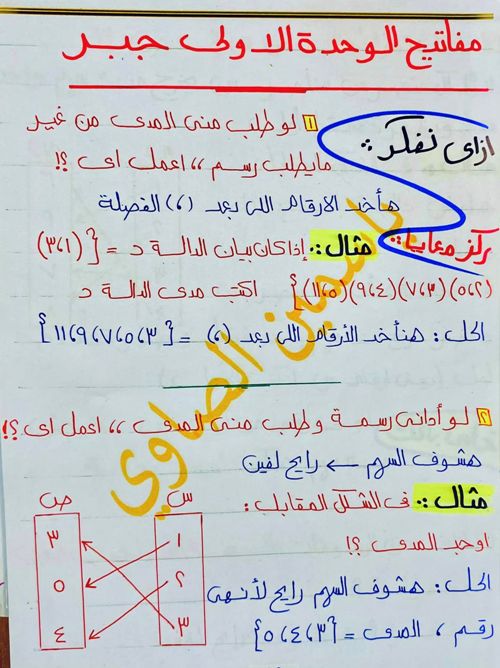 مفاتيح الوحدة الاولى جبر
ازاى نفكر :
١ لو طلب منى المدى من غير
مايطلب رسم ،، اعمل اى ؟!
هأخد الارقام اللى بعد (،) الفصلة
ركز معايا :
مثال : إذا كان بيان الدالة د = {(٣،١)
(٥،٢)(٧،٣)(٩،٤)(١١،٥)} اكتب مدى الدالة د
الحل : هنأخد الأرقام اللى بعد (،) = {٣،٥،٧،٩،١١}
٢ لو أدانى رسمة وطلب منى المدى ،، اعمل اى ؟!
هشوف السهم ← رايح لفين
مثال : فى الشكل المقابل :
اوجد المدى ؟!
الحل : هشوف السهم رايح لأنهى
رقم ، المدى = {٣،٤،٥}
س
١
٢
٣
ص
٣
٥
٤
ياسمين الصاوي